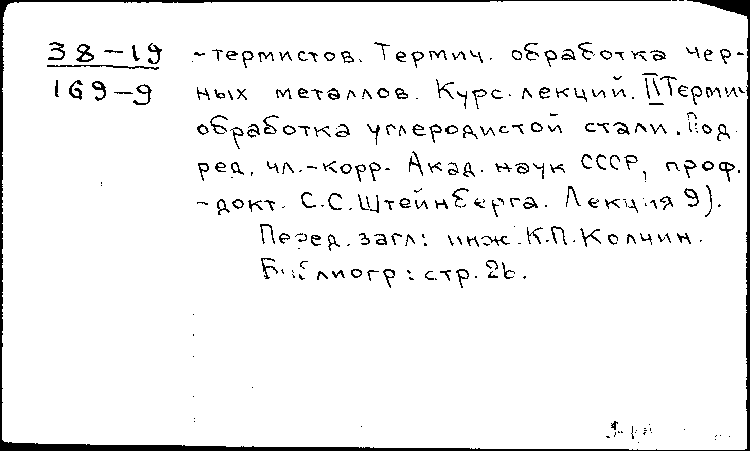 38-19
169-9
-термистов. Термич. обработка чер-
ных металлов. Курс лекций. III Термич
обработка углеродистой стали. Под
ред. чл.-корр. Акад. наук СССР, проф.
-докт. С.С.Штейнберга. Лекция 9).
Перед. загл: инж. К.П.Колчин.
Библиогр: стр. 26.